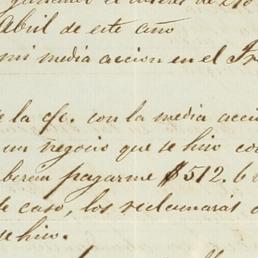 el interes de 210
Abril de este año
mi media accion en el
e la cfe. con la media acci
un negocio que se hizo co
beran pagarme $512. 6
te caso, los reclamarás
se hizo.